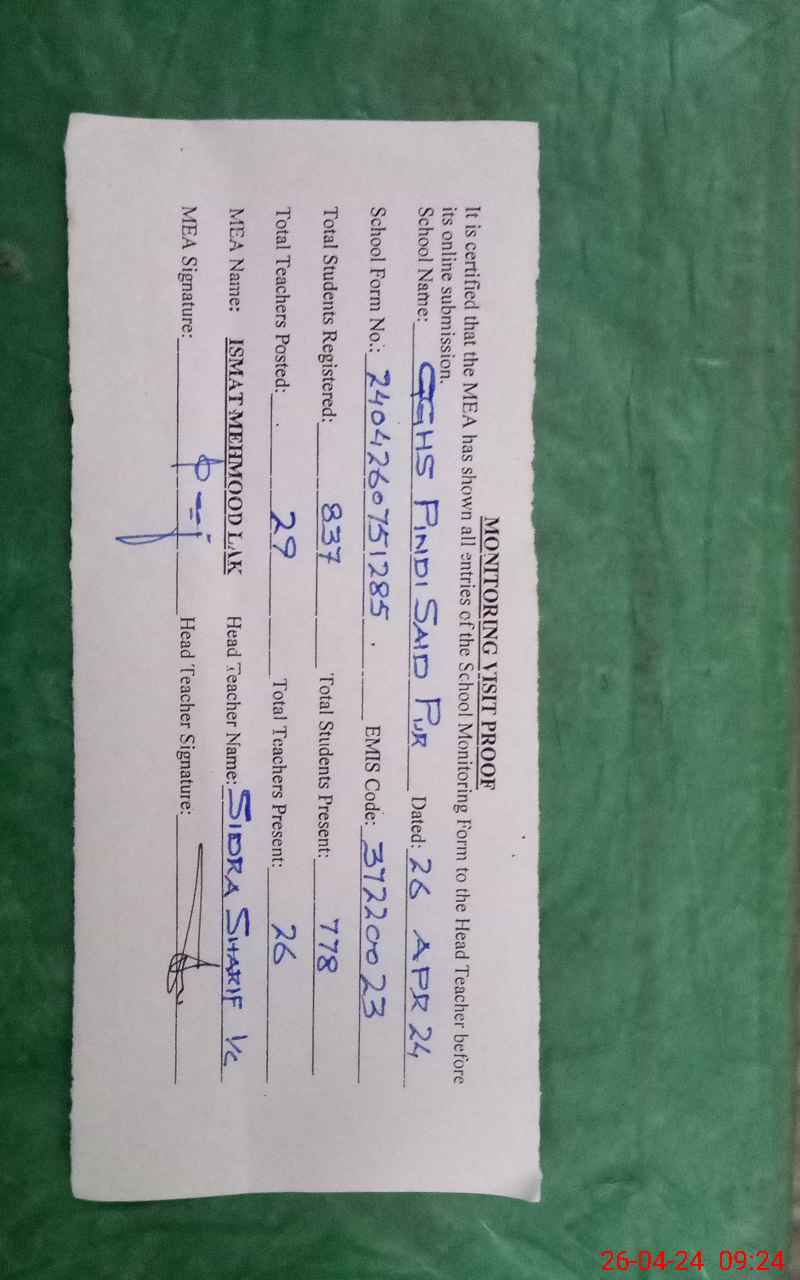 MONITORING VISIT PROOF
It is certified that the MEA has shown all entries of the School Monitoring Form to the Head Teacher before
its online submission.
School Name: GGHS PINDI SAID PUR Dated: 26 APR 24
School Form No.: 2404260751285. EMIS Code: 37220023
Total Students Registered: 837 Total Students Present: 778
Total Teachers Posted: 29 Total Teachers Present: 26
MEA Name: ISMAT MEHMOOD LAK Head Teacher Name: SIDRA SHARIF I/C
MEA Signature: Head Teacher Signature:
26-04-24 09:24